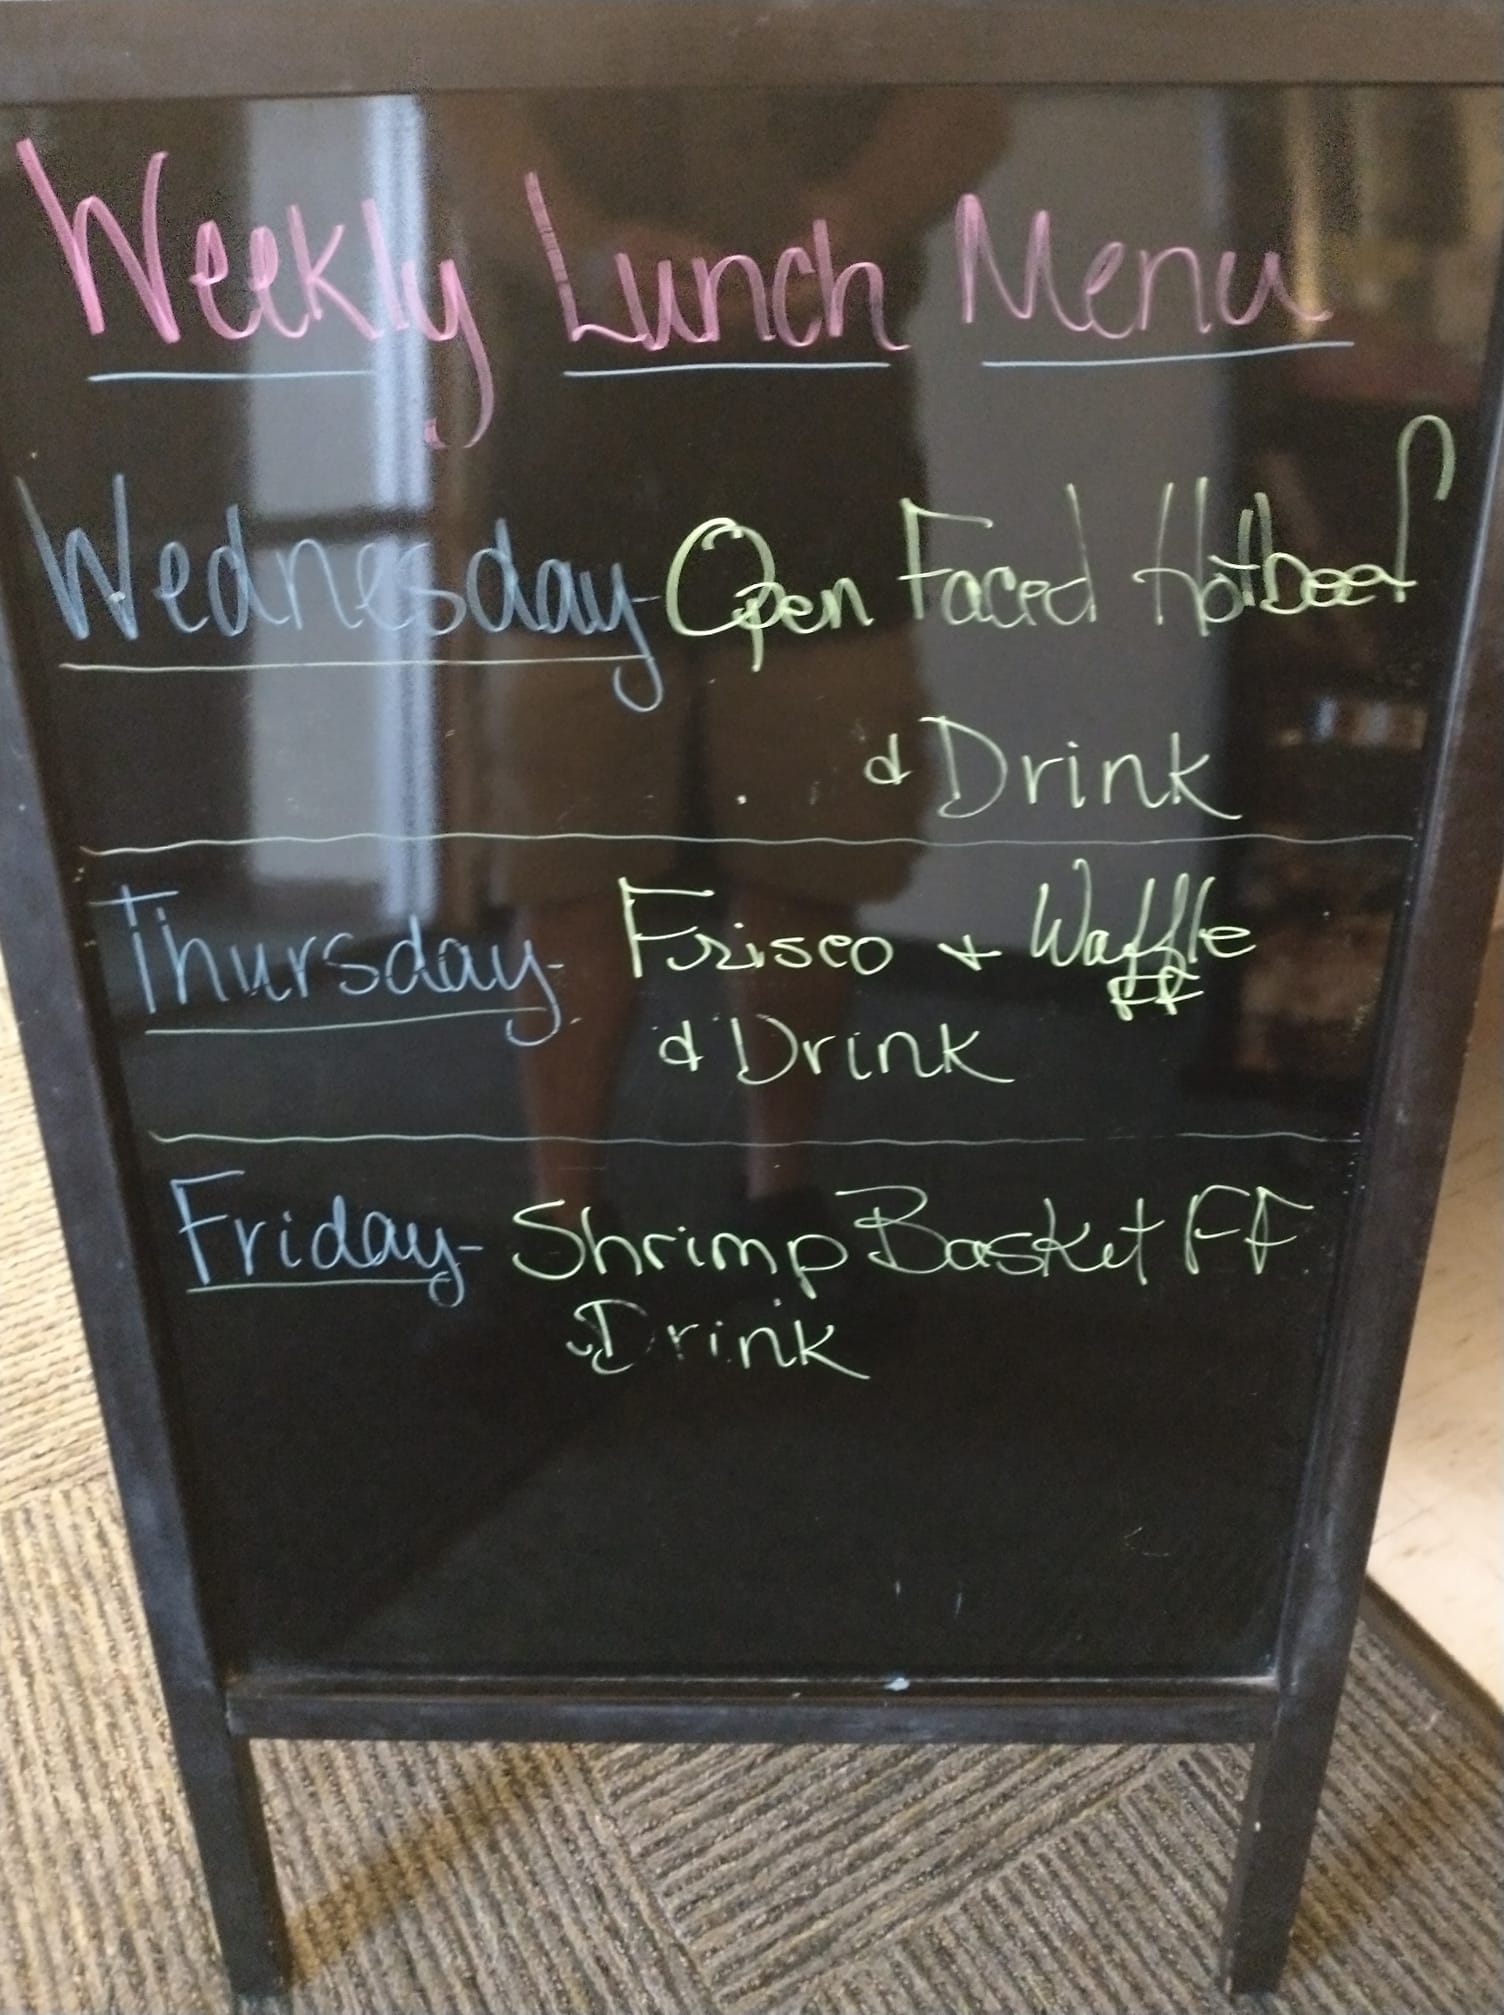 Weekly Lunch Menu
Wednesday- Open Faced Hotbeef
& Drink
Thursday- Frisco + Waffle
FF
& Drink
Friday- Shrimp Basket FF
Drink